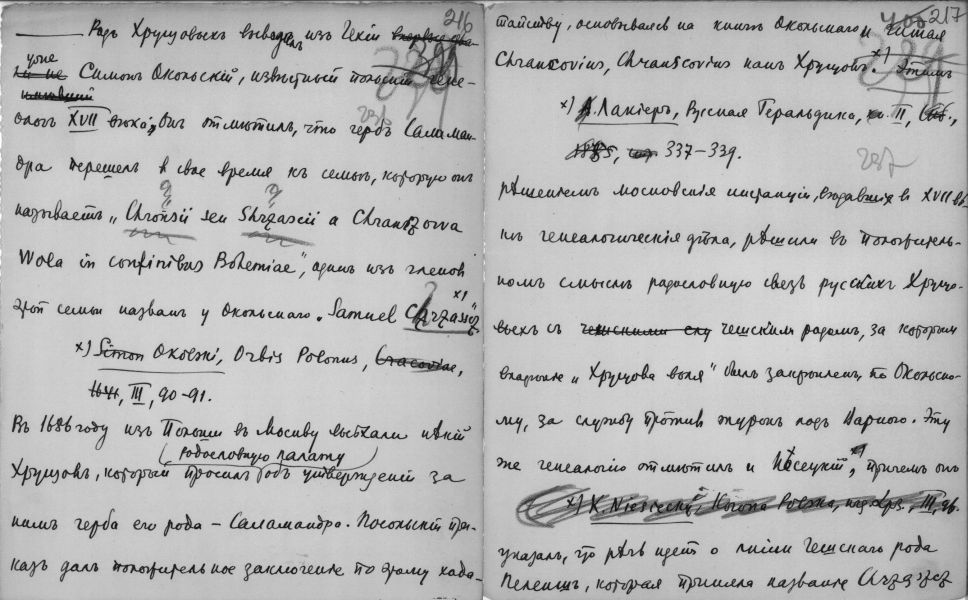 216
Родъ Хрущовыхъ выводилъ изъ Чехіи
уже
Симонъ Окольскій, извѣстный польскій гене-
ологъ XVII вѣка; онъ отмѣтилъ, что гербъ Саламан-
дра перешелъ в свое время къ семьѣ, которую онъ
называетъ „Chronsii seu Shrząscii a Chranszowa
Wola in confinibus Bohemiae", одинъ изъ членовъ
этой семьи названъ у Окольскаго „Samuel Chrząszcz x)"
x) Simon Okolski, Orbis Polonus, Cracoviae,
1641, III, 90-91.
Въ 1686 году изъ Польши въ Москву выѣхали нѣкій
родословную палату
Хрущовъ, который просилъ объ утвержденіи за
нимъ герба его рода – Саламандра. Посольскій при-
казъ далъ положительное заключеніе по этому хода-
217
тайству, основываясь на книгѣ Окольскаго и считая
Chranscovius, Chranscovius намъ Хрущовъ. x) Этимъ
x) А. Лакіеръ, Русская Геральдика, кн. II, Спб.,
1855, стр. 337-339.
237
рѣшеніемъ московскія инстанціи, вѣдавшія в XVII вѣ-
кѣ генеалогическія дѣла, рѣшили въ положитель-
номъ смыслѣ родословную связь русскихъ Хрущо-
выхъ съ чешскимъ родомъ, за которымъ
владѣніе „Хрущова воля" былъ закрѣпленъ, по Окольско-
му, за службу противъ турокъ подъ Варной. Эту
же генеалогію отмѣтилъ и Нѣсецкій, x) причемъ онъ
x) K. Niesiecki, Korona Polska, III, 96.
указалъ, что рѣчь идетъ о линіи чешскаго рода
которая приняла названіе Chrząszcz